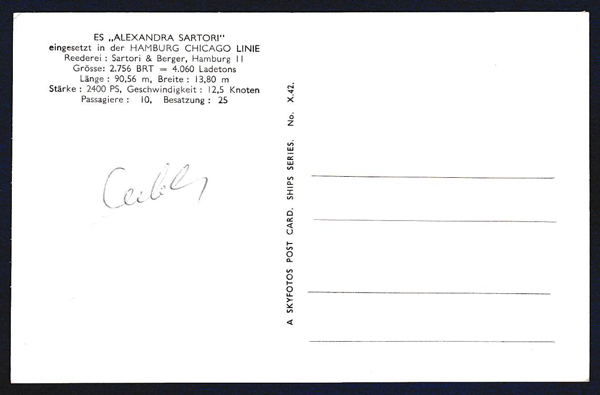 ES „ALEXANDRA SARTORI"
eingesetzt in der HAMBURG CHICAGO LINIE
Reederei : Sartori & Berger, Hamburg 11
Grösse: 2.756 BRT = 4.060 Ladetons
Länge : 90,56 m, Breite : 13,80 m
Stärke : 2400 PS, Geschwindigkeit : 12,5 Knoten
Passagiere : 10, Besatzung : 25
A SKYFOTOS POST CARD. SHIPS SERIES. No. X.42.